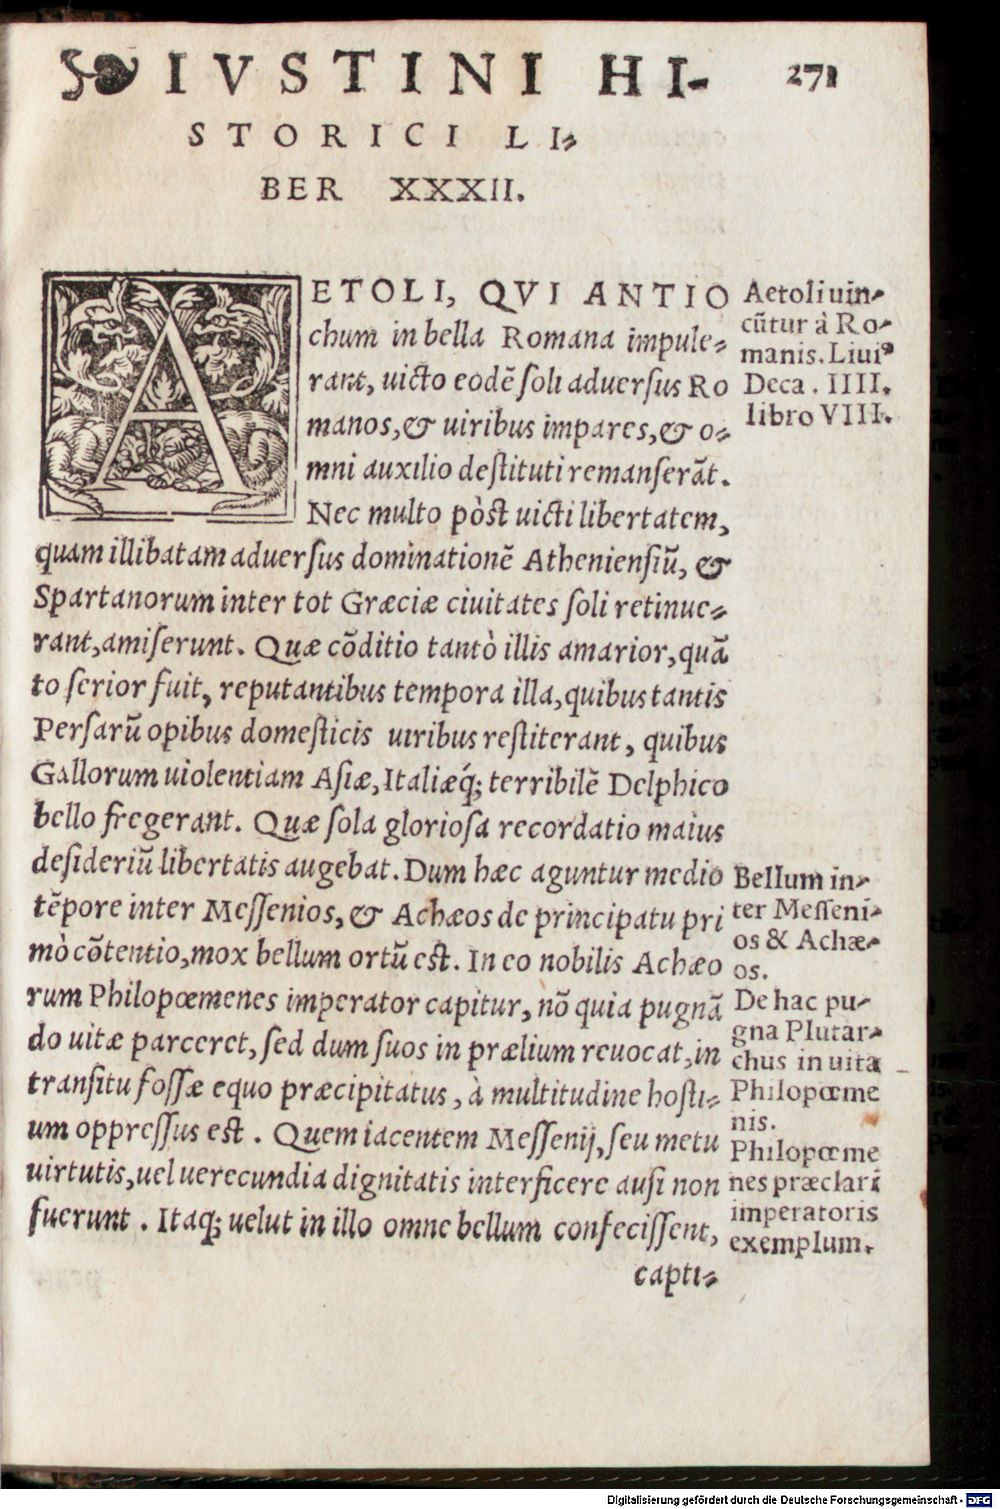 IVSTINI HI-
271
STORICI LI-
BER XXXII.
AETOLI, QVI ANTIO
chum in bella Romana impule-
rant, uicto eodē soli aduersus Ro
manos, & uiribus impares, & o-
mni auxilio destituti remanserāt.
Nec multo pòst uicti libertatem,
quam illibatam aduersus dominationē Atheniensiū, &
Spartanorum inter tot Græciæ ciuitates soli retinue-
rant, amiserunt. Quæ cōditio tantò illis amarior, quā
to serior fuit, reputantibus tempora illa, quibus tantis
Persarū opibus domesticis uiribus restiterant, quibus
Gallorum uiolentiam Asiæ, Italiæq́; terribilē Delphico
bello fregerant. Quæ sola gloriosa recordatio maius
desideriū libertatis augebat. Dum hæc aguntur medio
tēpore inter Messenios, & Achæos de principatu pri
mò cōtentio, mox bellum ortū est. In eo nobilis Achæo
rum Philopœmenes imperator capitur, nō quia pugnā
do uitæ parceret, sed dum suos in prælium reuocat, in
transitu fossæ equo præcipitatus, à multitudine hosti-
um oppressus est. Quem iacentem Messenij, seu metu
uirtutis, uel uerecundia dignitatis interficere ausi non
fuerunt. Itaq; uelut in illo omne bellum confecissent,
capti-
Aetoli uin-
cūtur à Ro-
manis. Liuiꝰ
Deca. IIII.
libro VIII.
Bellum in-
ter Messeni-
os & Achæ-
os.
De hac pu-
gna Plutar-
chus in uita
Philopœme
nis.
Philopœme
nes præclari
imperatoris
exemplum.
Digitalisierung gefördert durch die Deutsche Forschungsgemeinschaft - DFG